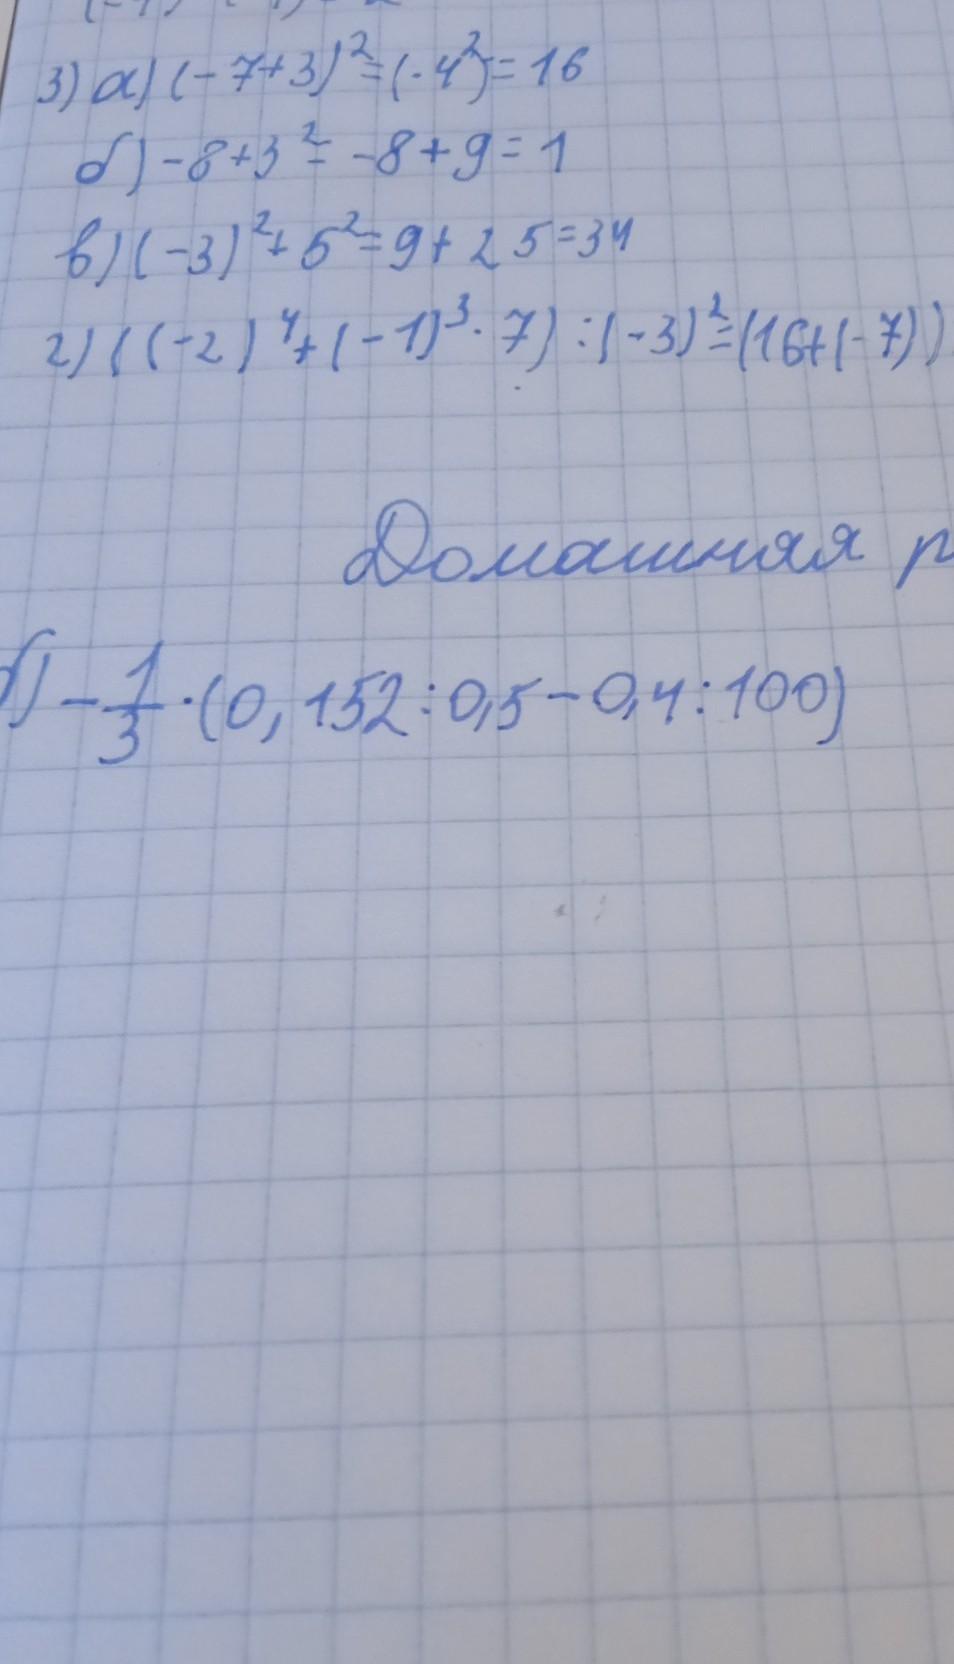 3) а) (-7+3)²=(-4²)=16
б) -8+3²=-8+9=1
в) (-3)²+5²=9+25=34
г) ((-2)⁴+(-1)³·7):(-3)²=(16+(-7))
Домашняя
б) -1/3·(0,152:0,5-0,4:100)